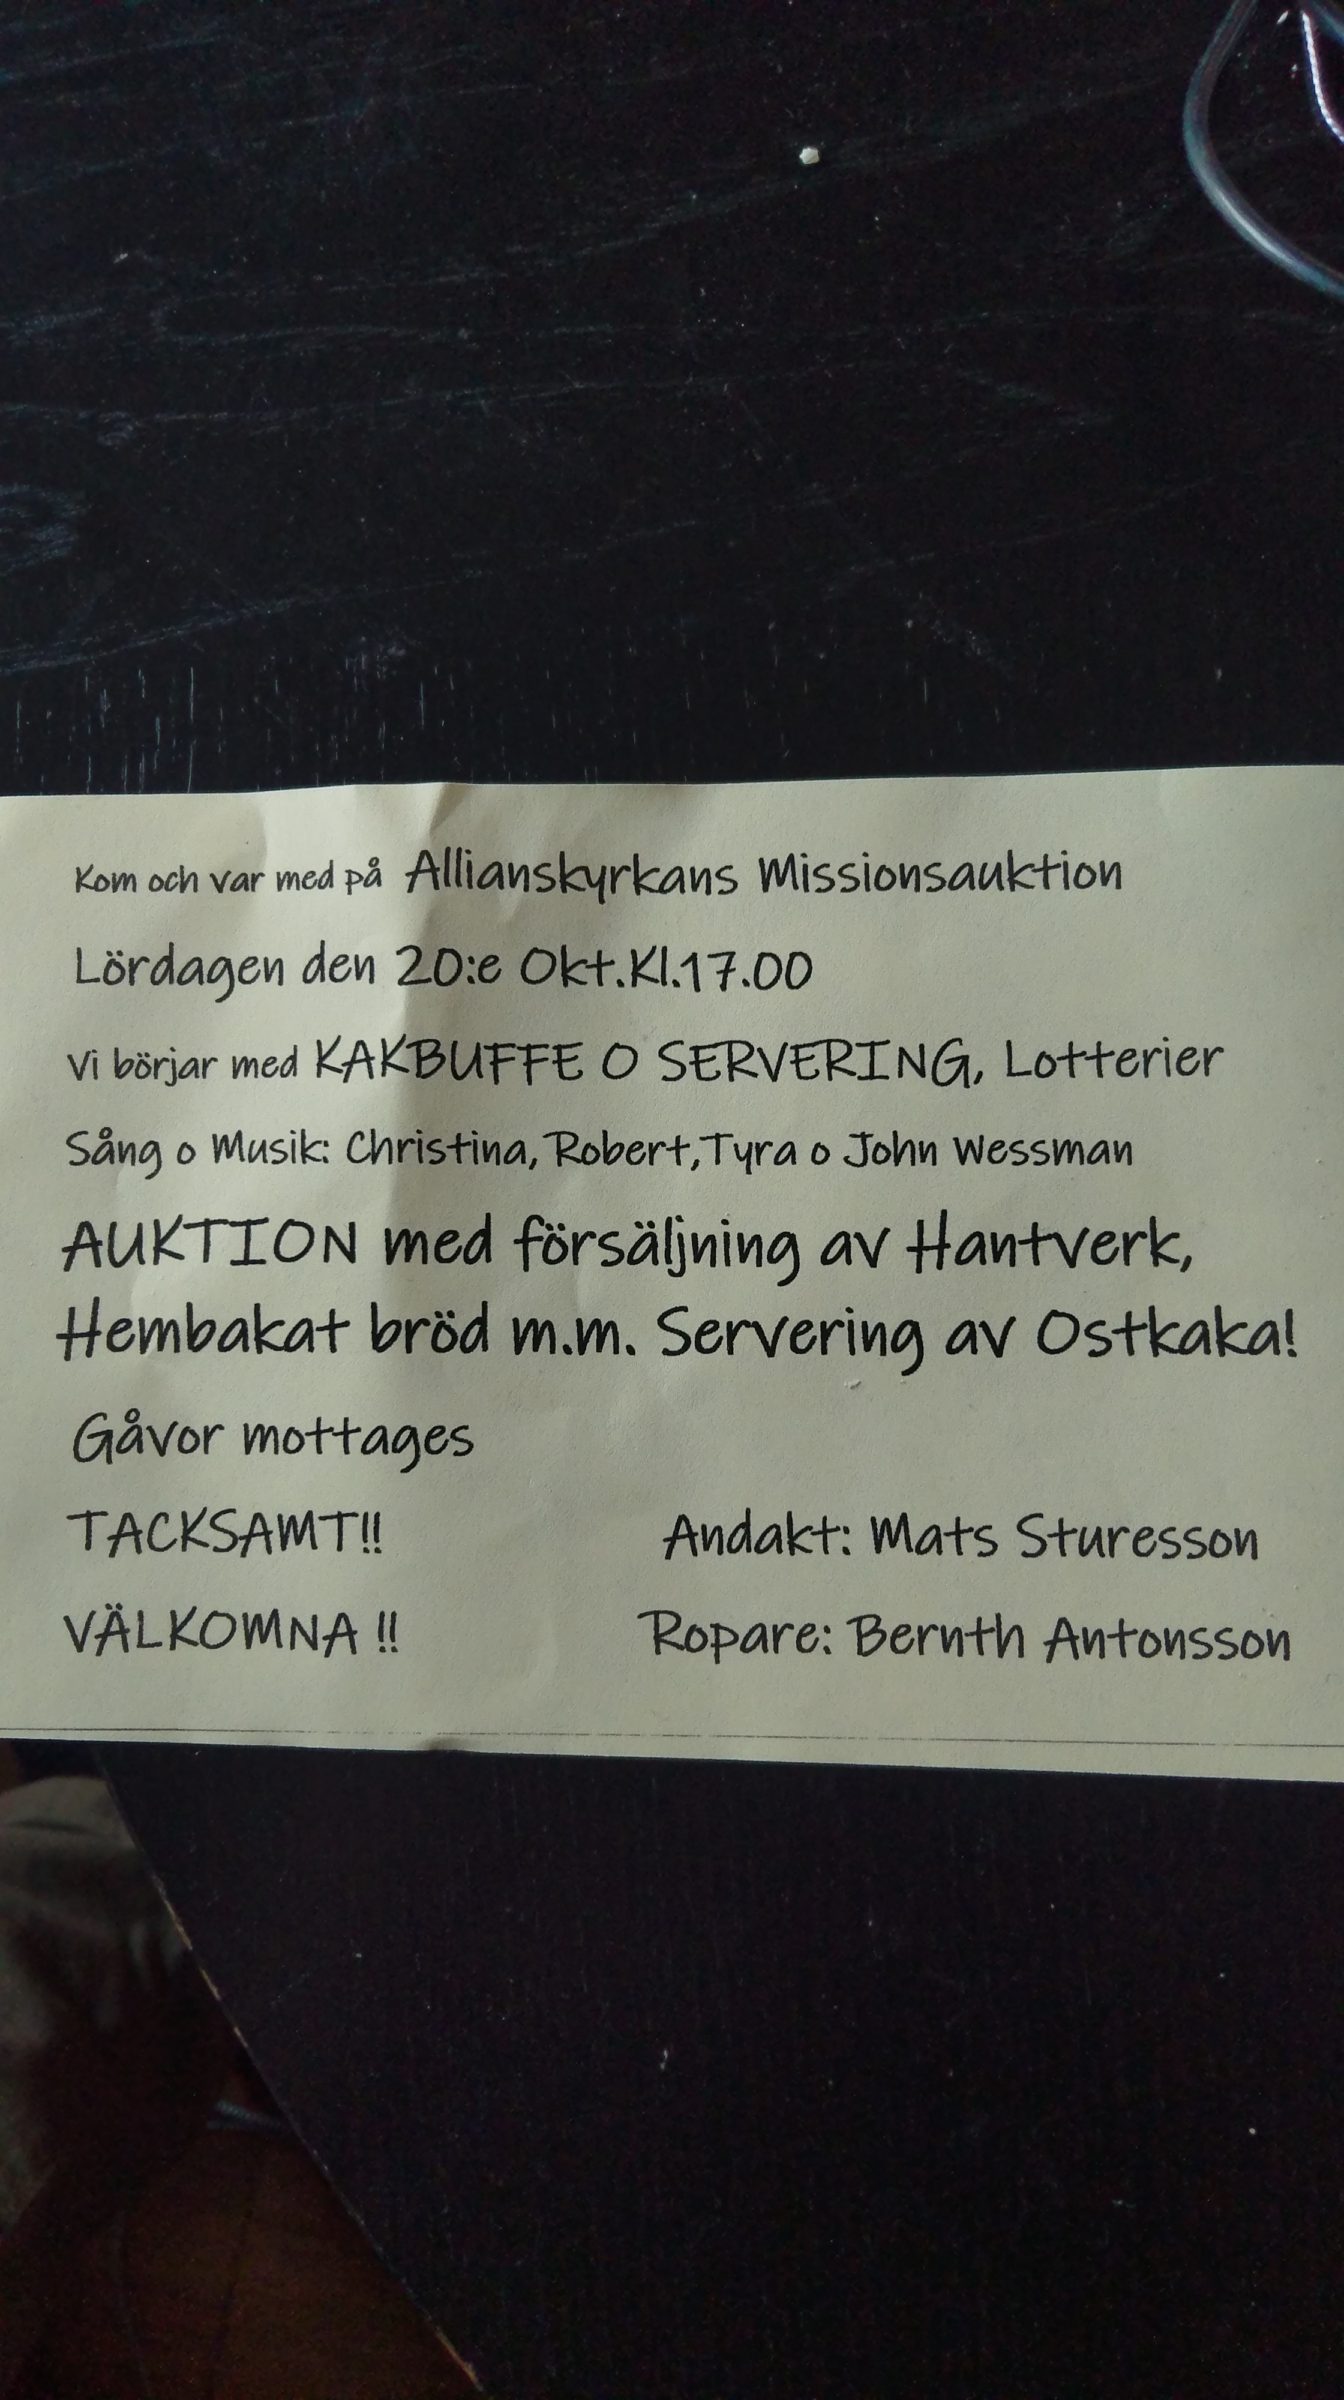 Kom och var med på Allianskyrkans Missionsauktion
Lördagen den 20:e Okt.Kl.17.00
Vi börjar med KAKBUFFE O SERVERING, Lotterier
Sång o Musik: Christina, Robert,Tyra o John Wessman
AUKTION med försäljning av Hantverk,
Hembakat bröd m.m. Servering av Ostkaka!
Gåvor mottages
TACKSAMT!! Andakt: Mats Sturesson
VÄLKOMNA !! Ropare: Bernth Antonsson